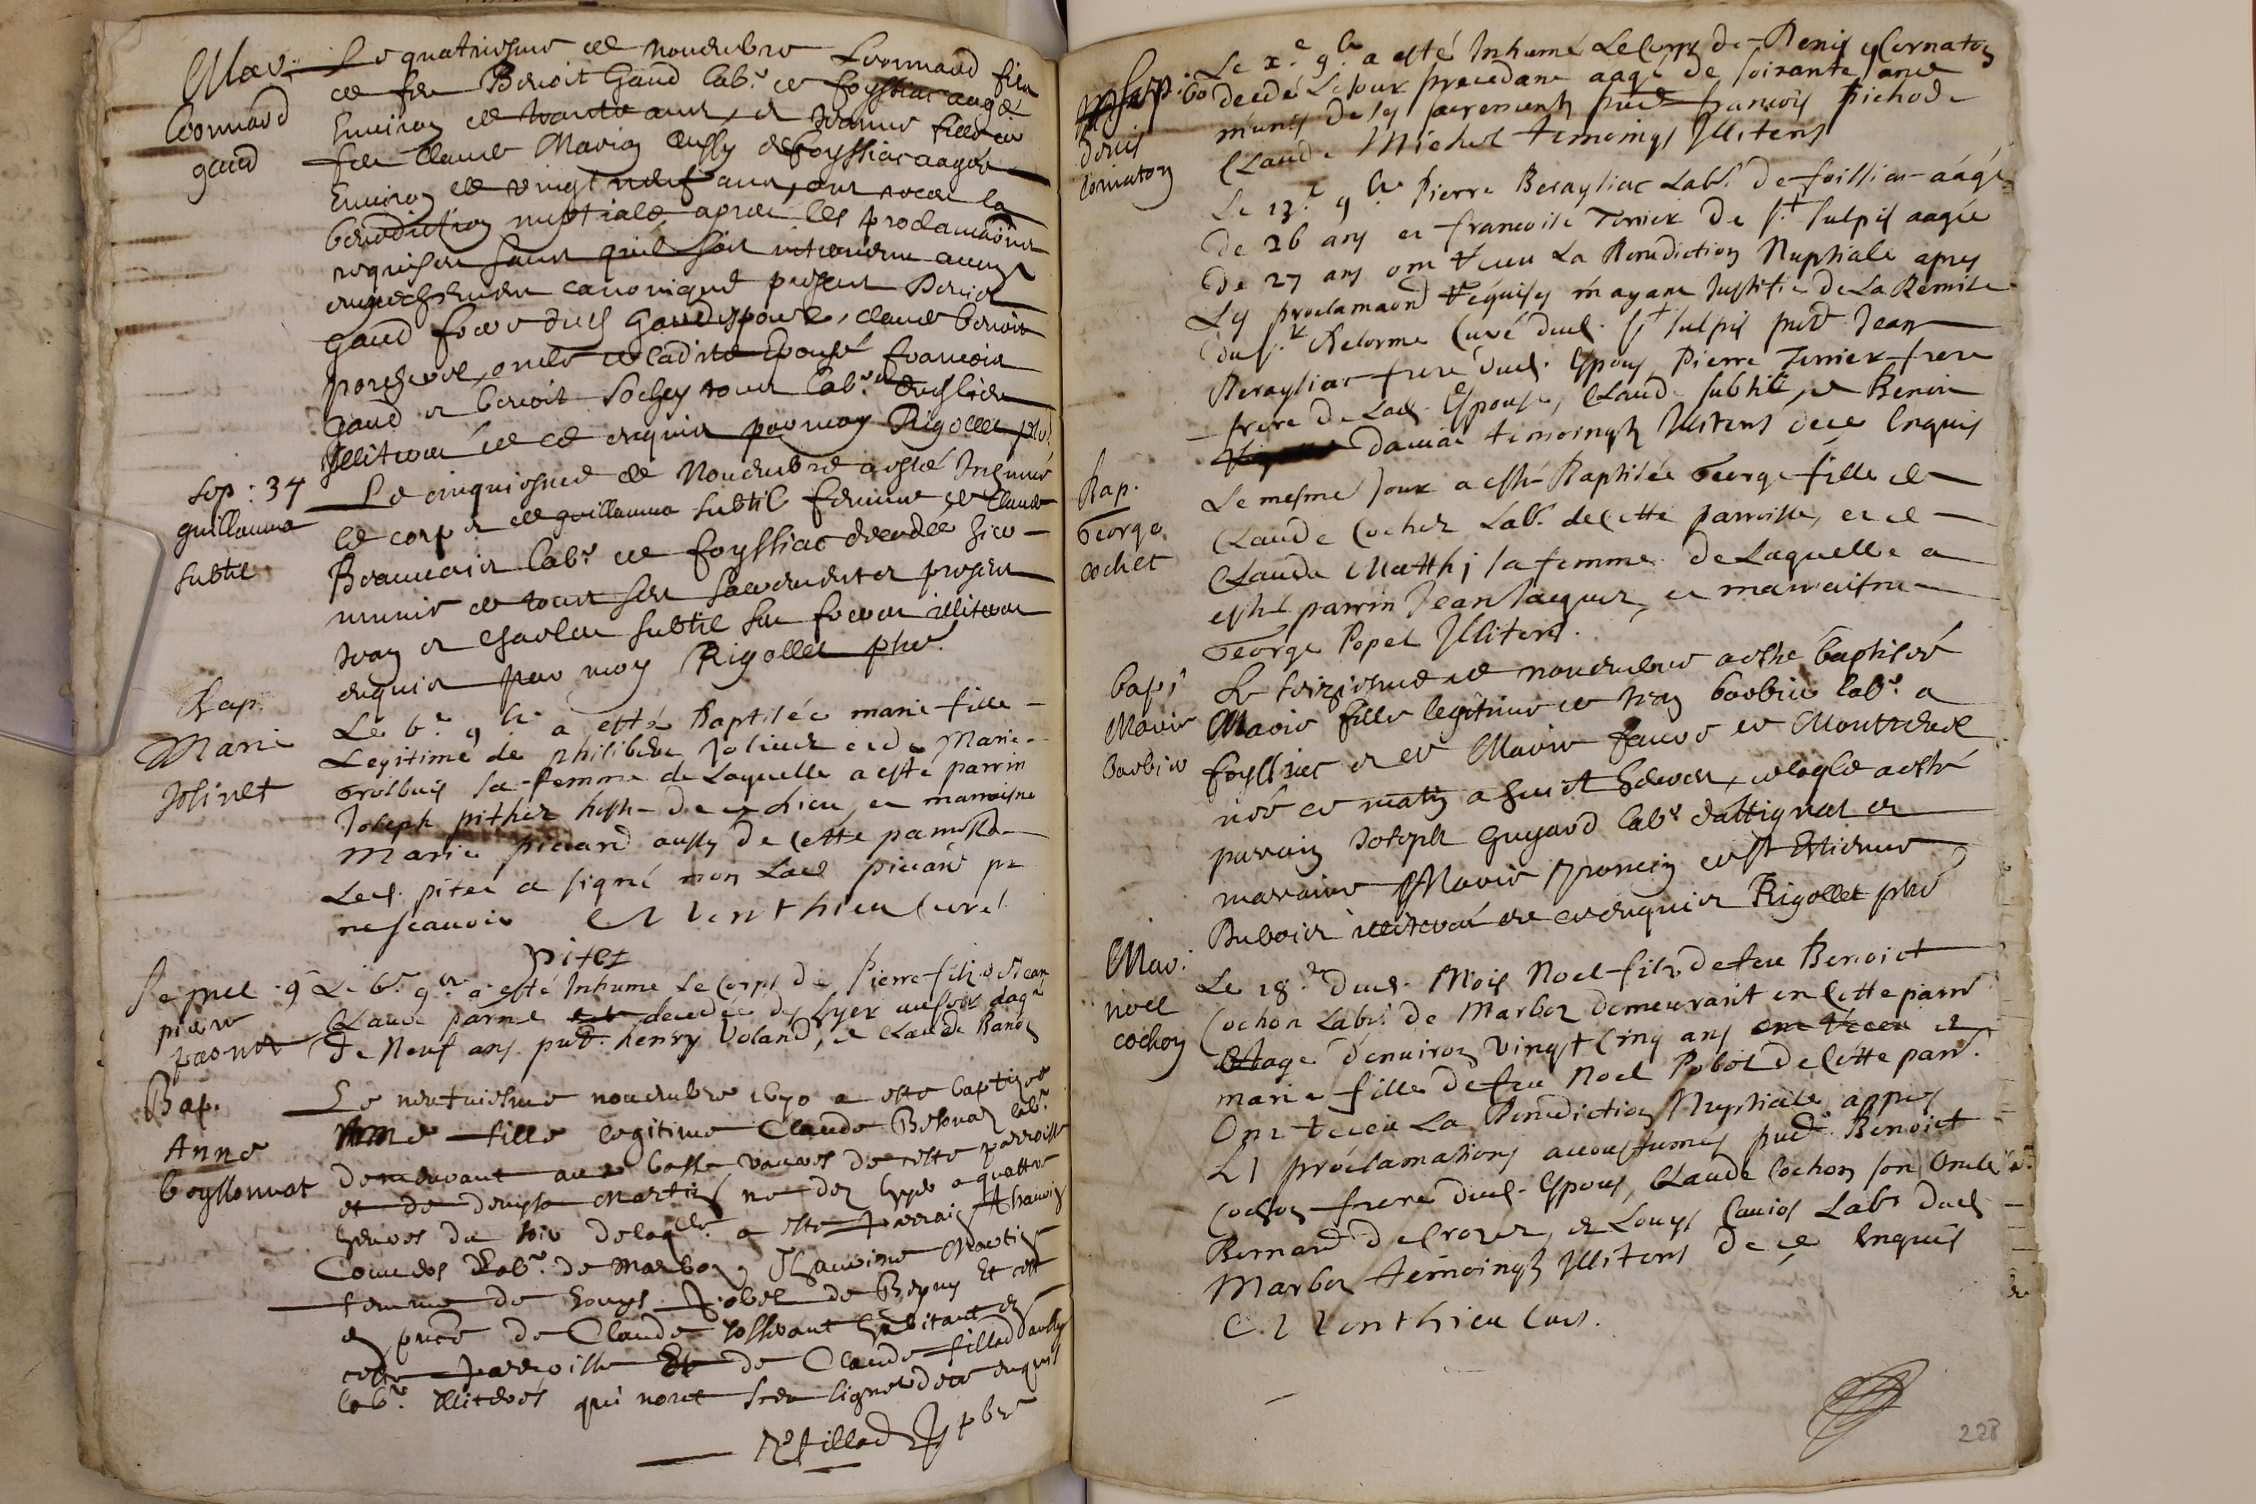 Mar.
Leonnard
gaud
Le quatriesme de nouembre Leonnard filz
de feu Benoit Gaud lab.r de foyssiac aagé
Enuiron de trante ans, et Jeanne fille de
feu Claude Marion aussy de foyssiac aagée
Enuiron de vingt neuf ans, ont receu la
benediction nuptiale apres les proclamaons
requises sans quil soit interuenu aucun
empeschement canonique present Benoit
gaud frere dud gaud espoux, claude benoit
oncle de ladite Epouse francois
gaud et benoit Sochey tous lab.rs dud lieu
Illiteres de ce enquis par moy Rigollet pbr.
Sep : 34
guillauma
subtil
Le cinquiesme de Nouembre a esté Inhumé
le corps de guillauma subtil femme de Claude
Beauuoir lab.r de foyssiac decedée hier
munie de tous ses sacrements present
Jean et Charles subtil ses freres illiteres
enquis par moy Rigollet pbr.
Bap.
Marie
Jolinet
Le 6.e 9.bre a esté Baptisée marie fille
Legitime de philibert Jolinet et de Marie
Trosbuis sa femme de Laquelle a esté parrin
Joseph pithet hoste de ce lieu, et marraisne
Marie picard aussy de cette parroisse
Led. pitet a signé non Lad picard pr
ne scauoir C M Vonthieu Curé
pitet
Sepul. 9
pierre
parnet
Le 6.e 9.bre a esté Inhumé Le Corps de Pierre filz de Jean
Claude parnet decedé du Jyer au soir aagé
De Neuf ans pnt. henry Voland, et Claude Bandz
Bap.
Anne
beyssonnat
Le neufuiesme nouembre 1670 a esté baptizée
Anne fille legitime Claude Besonat lab.r
demeurant au basse vauures de ceste parroisse
et de denise Martin née hyer a quattre
heures du soir delaqlle a esté parrain Athauin
Couuet Lab.r de Marboz, Thauoine Martin
femme de Louys pobel de Beny Et cest
en pnce de Claude Josserant habitant en
ceste parroisse Et de Claude fillod aussy
lab.r illiteres qui nont sceu signer de ce enquis
R fillod pbr
Sep : 60
denis
cornaton
Le x.e 9.bre a esté Inhumé Le Corps de Denis Cornaton
decedé Le Jour precedant aagé de soixante ans
munis de ses sacrements pnt francois pichod
Claude Michel temoings Illiteres
Le 13.e 9.bre Pierre Beraysiac Lab.r de foissiac aagé
De 26 ans et francoise Terrier De S.t Sulpis aagée
De 27 ans ont receu La Benediction Nuptiale apres
Les proclamaons requises m'ayant Justifié De La Remise
du s.r Delorme Curé dud. S.t Sulpis pnt Jean
Beraysiac frere dud. Espoux, Pierre Terrier frere
frere de Lad. Espouse, Claude subtil, et Benoit
Damas temoingts Illiteres de ce Enquis
Bap.
George
cochet
Le mesme Jour a esté Baptisée George fille de
Claude Cochet Lab.r de Cette parroisse, et de
Claude Matthi sa femme de Laquelle a
esté parrin Jean Jacquet, et marraisne
George Popet Illiteres.
bap.
Marie
barbier
Le treiziesme de nouembre a esté baptisée
Marie fille legitime de Jean barbier lab.r a
foyssiac et de Marie faure de Montrevel
née ce matin a huict heures, de laqlle a esté
parrin Joseph Guyard lab.r dattignat et
marraine Marie Francin de st Estienne
Du bois illiteres de ce enquis Rigollet pbr
Mar.
noel
cochon
Le 18.e dud. Mois Noel filz de feu Benoict
Cochon Lab.r de Marboz demeurant en Cette parr
aage d'enuiron vingt Cinq ans et
marie fille de feu Noel Pobel de Cette parr.
Ont receu La Benediction Nuptiale appres
Les proclamations accoustumes pnt Benoict
Cochon frere dud. Espoux, Claude Cochon son Oncle
Bernard de Crozet, et Louys Cauiot Lab.r dud
Marboz temoingts Illiteres de ce Enquis
C. M Vonthieu Curé.
228